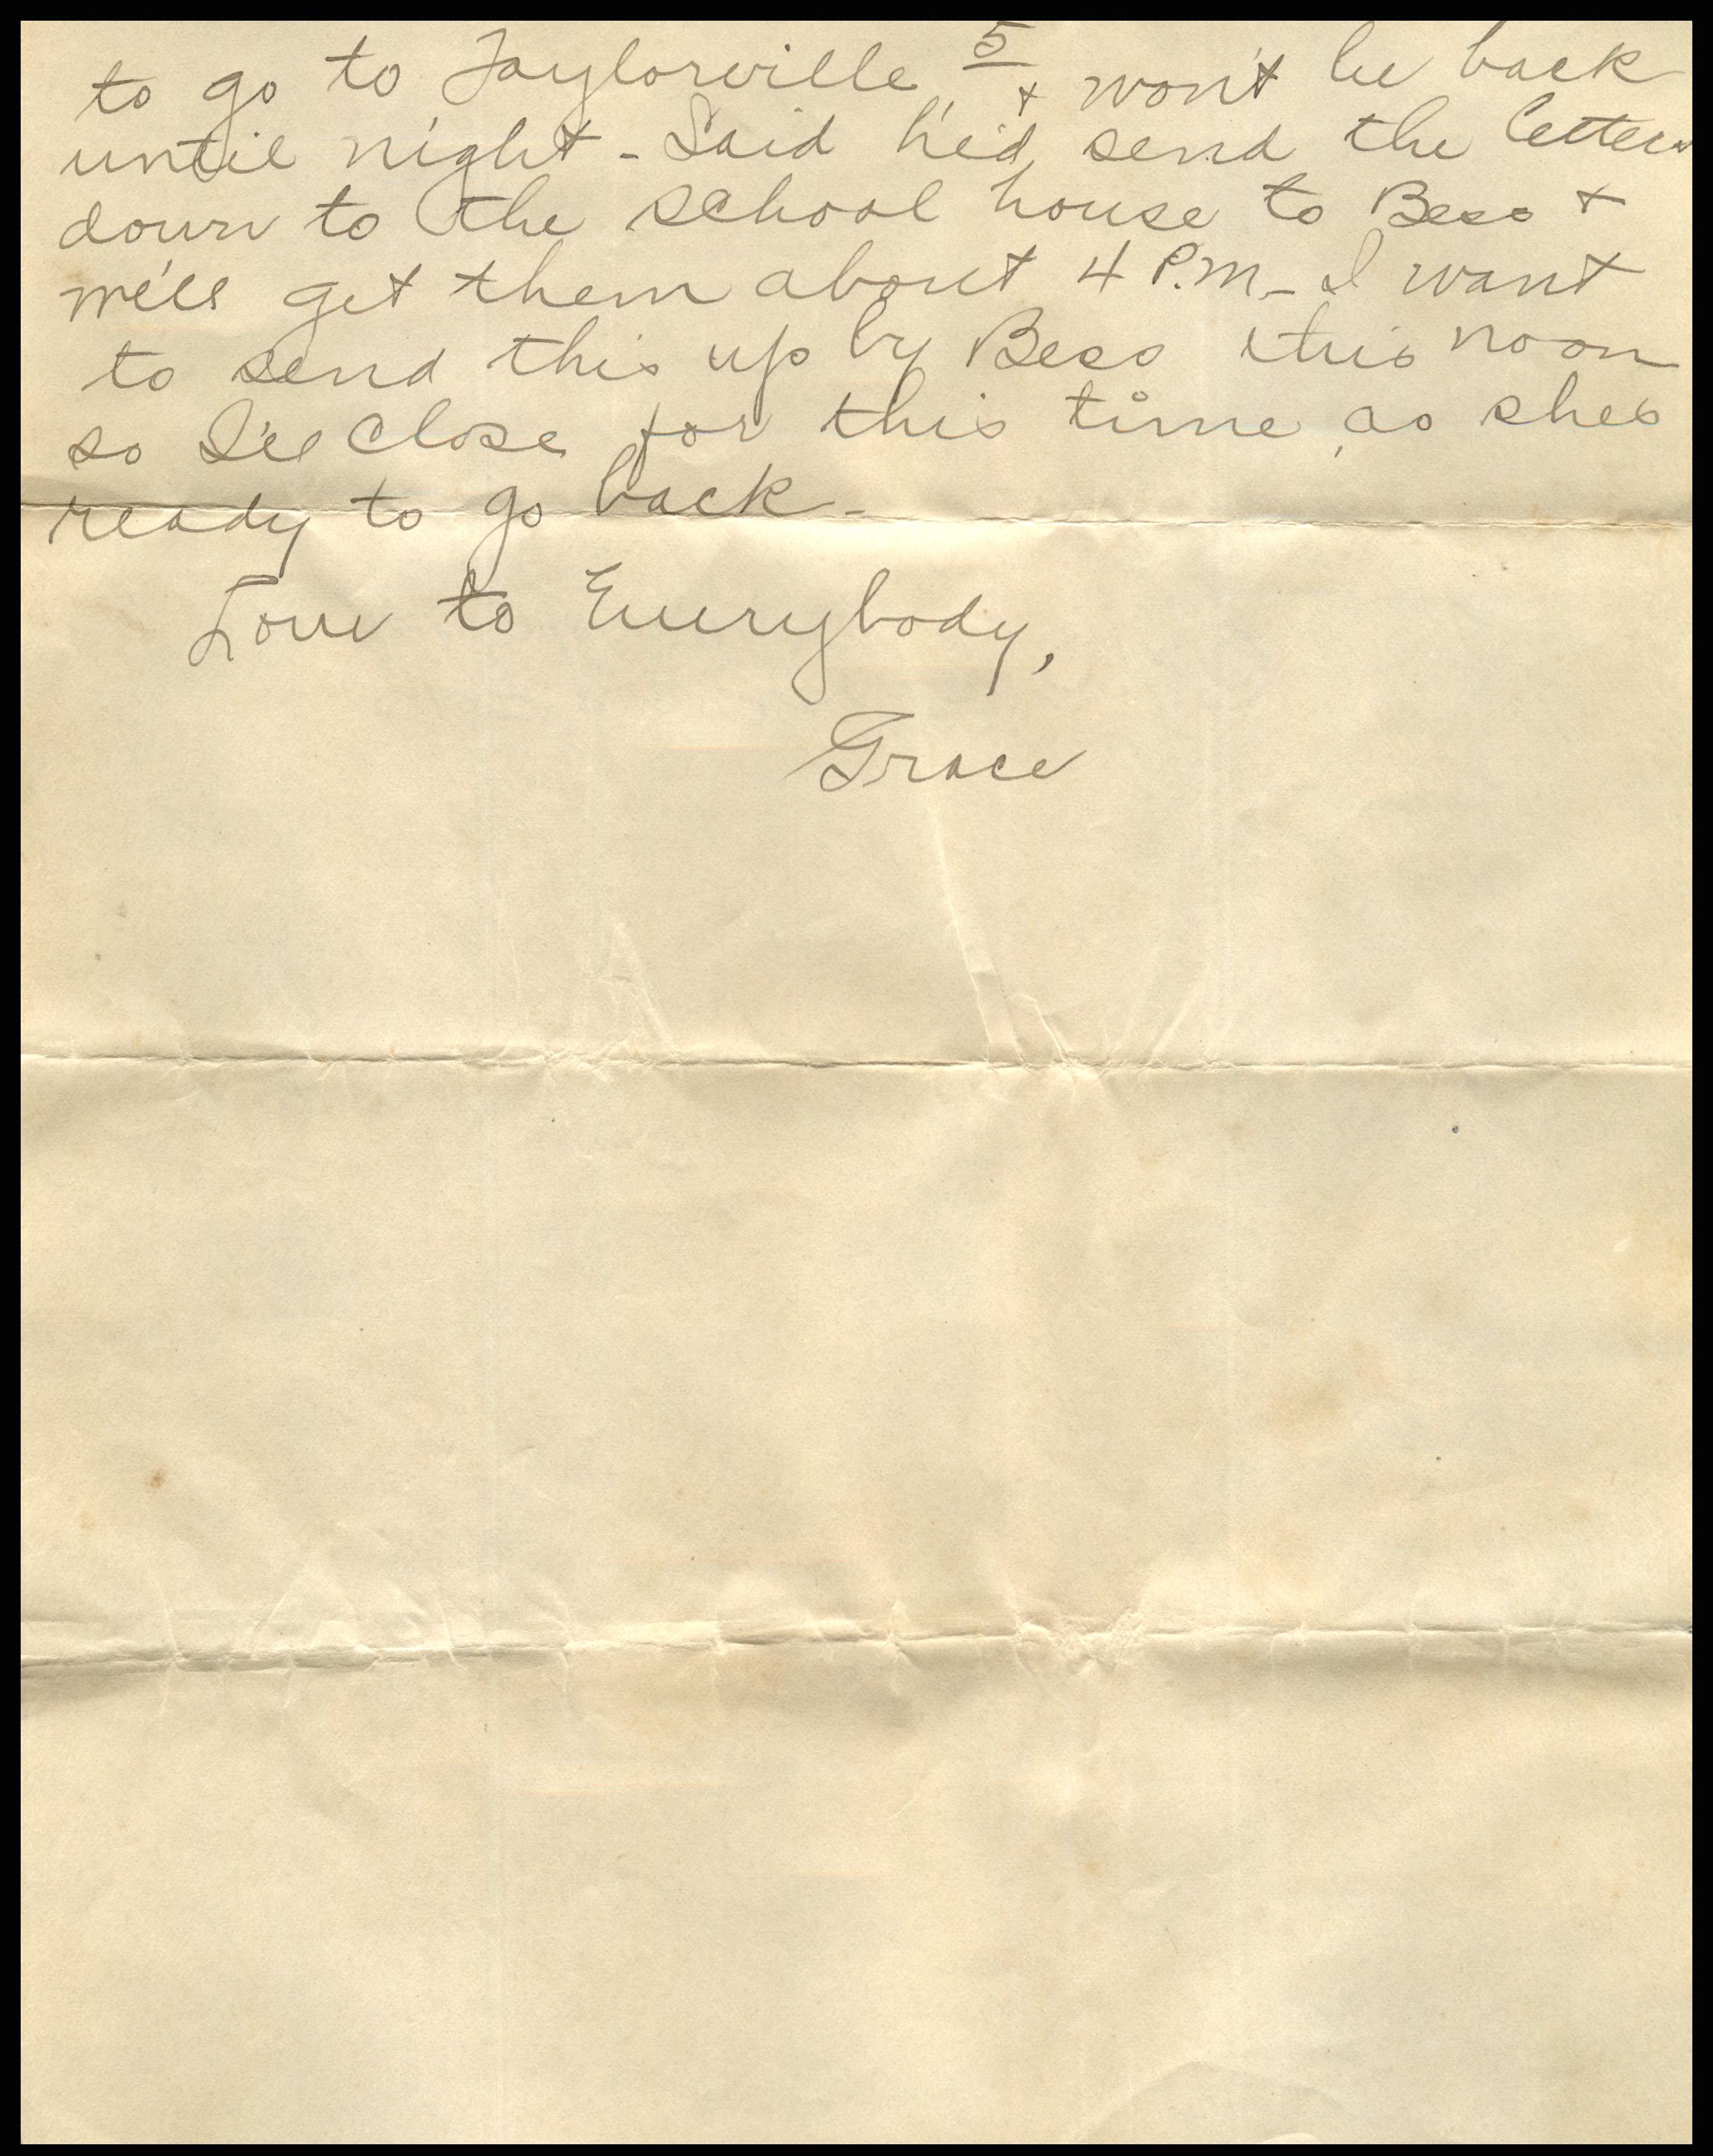 5
to go to Taylorville, + won't be back
until night - Said he'd send the letters
down to the school house to Bess +
we'll get them about 4 P.M. - I want
to send this up by Bess this noon
so I'll close for this time, as she's
ready to go back -
Love to Everybody,
Grace